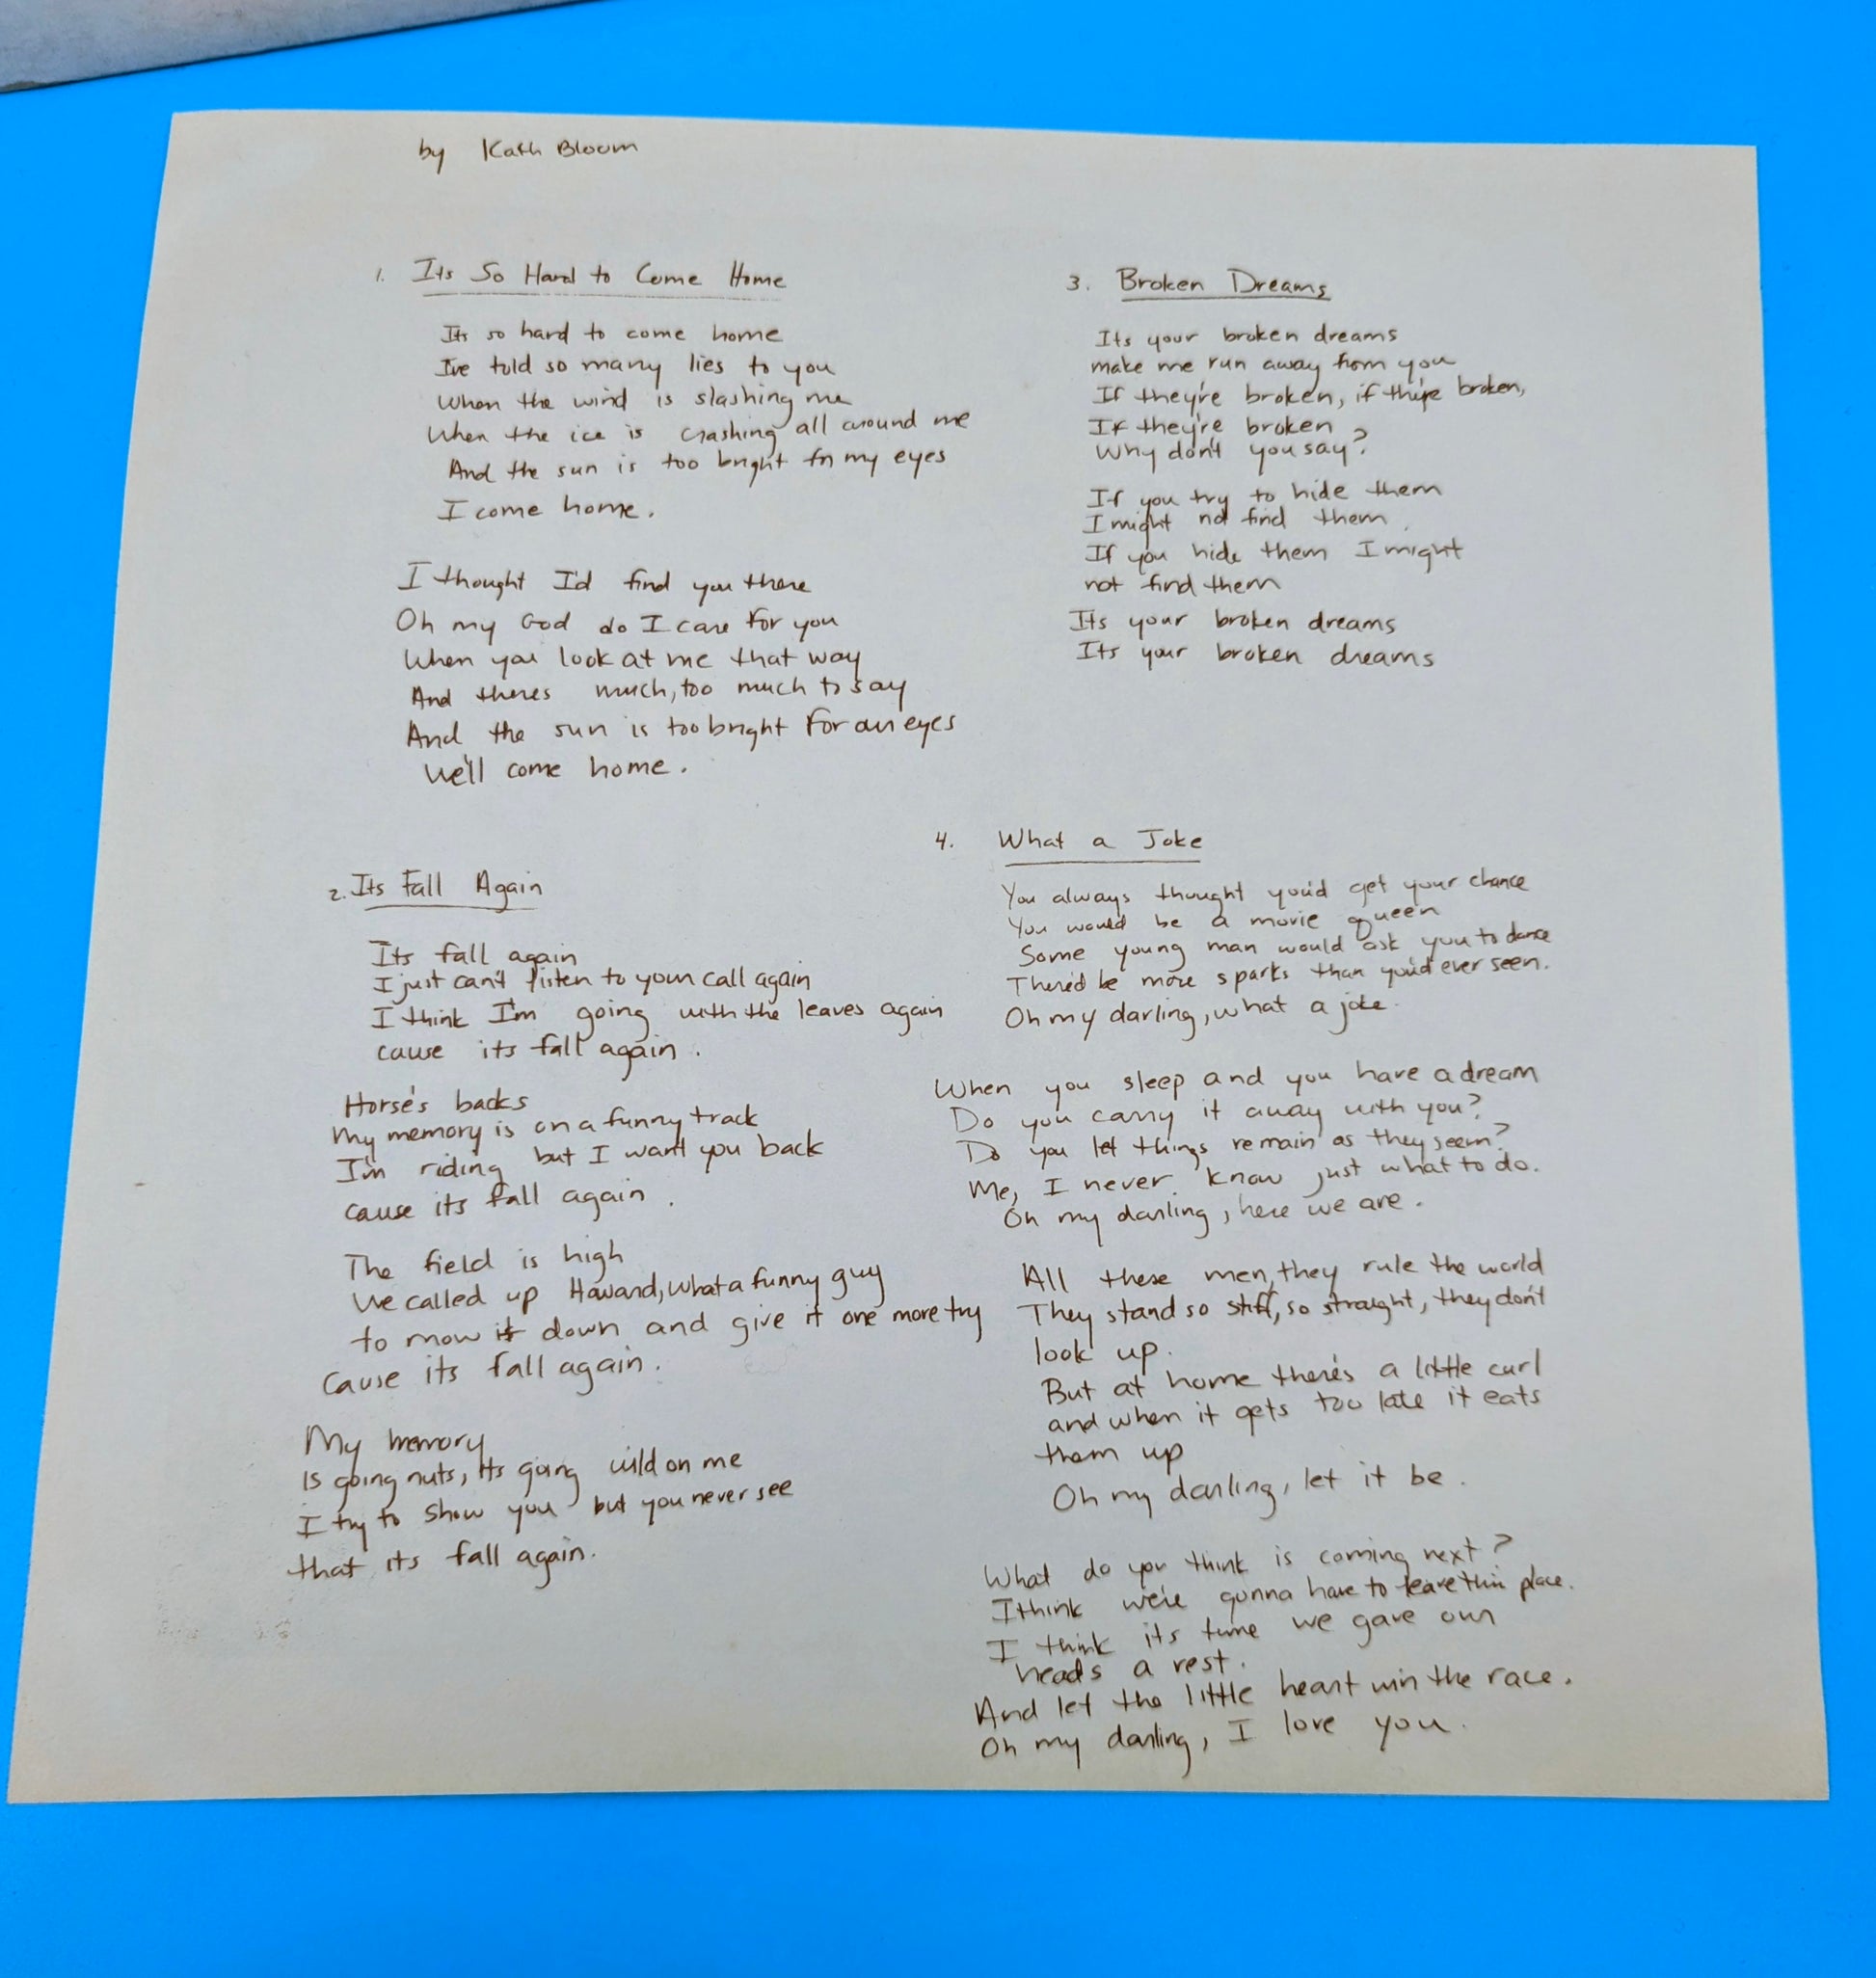 by Kath Bloom
1. Its So Hard to Come Home
Its so hard to come home
I've told so many lies to you
When the wind is slashing me
When the ice is crashing all around me
And the sun is too bright for my eyes
I come home.
I thought I'd find you there
Oh my God do I care for you
When you look at me that way
And theres much, too much to say
And the sun is too bright for our eyes
We'll come home.
2. Its Fall Again
Its fall again
I just can't listen to your call again
I think I'm going with the leaves again
cause its fall again.
Horse's backs
My memory is on a funny track
I'm riding but I want you back
cause its fall again.
The field is high
We called up Howard, what a funny guy
to mow it down and give it one more try
Cause its fall again.
My memory
Is going nuts, its going wild on me
I try to show you but you never see
that its fall again.
3. Broken Dreams
Its your broken dreams
make me run away from you
If they're broken, if they're broken,
If they're broken
Why don't you say?
If you try to hide them
I might not find them.
If you hide them I might
not find them
Its your broken dreams
Its your broken dreams
4. What a Joke
You always thought you'd get your chance
You would be a movie queen
Some young man would ask you to dance
There'd be more sparks than you'd ever seen.
Oh my darling, what a joke.
When you sleep and you have a dream
Do you carry it away with you?
Do you let things remain as they seem?
Me, I never know just what to do.
Oh my darling, here we are.
All these men, they rule the world
They stand so stiff, so straight, they don't
look up.
But at home there's a little curl
and when it gets too late it eats
them up
Oh my darling, let it be.
What do you think is coming next?
I think we're gonna have to leave this place.
I think its time we gave our
heads a rest.
And let the little heart win the race.
Oh my darling, I love you.